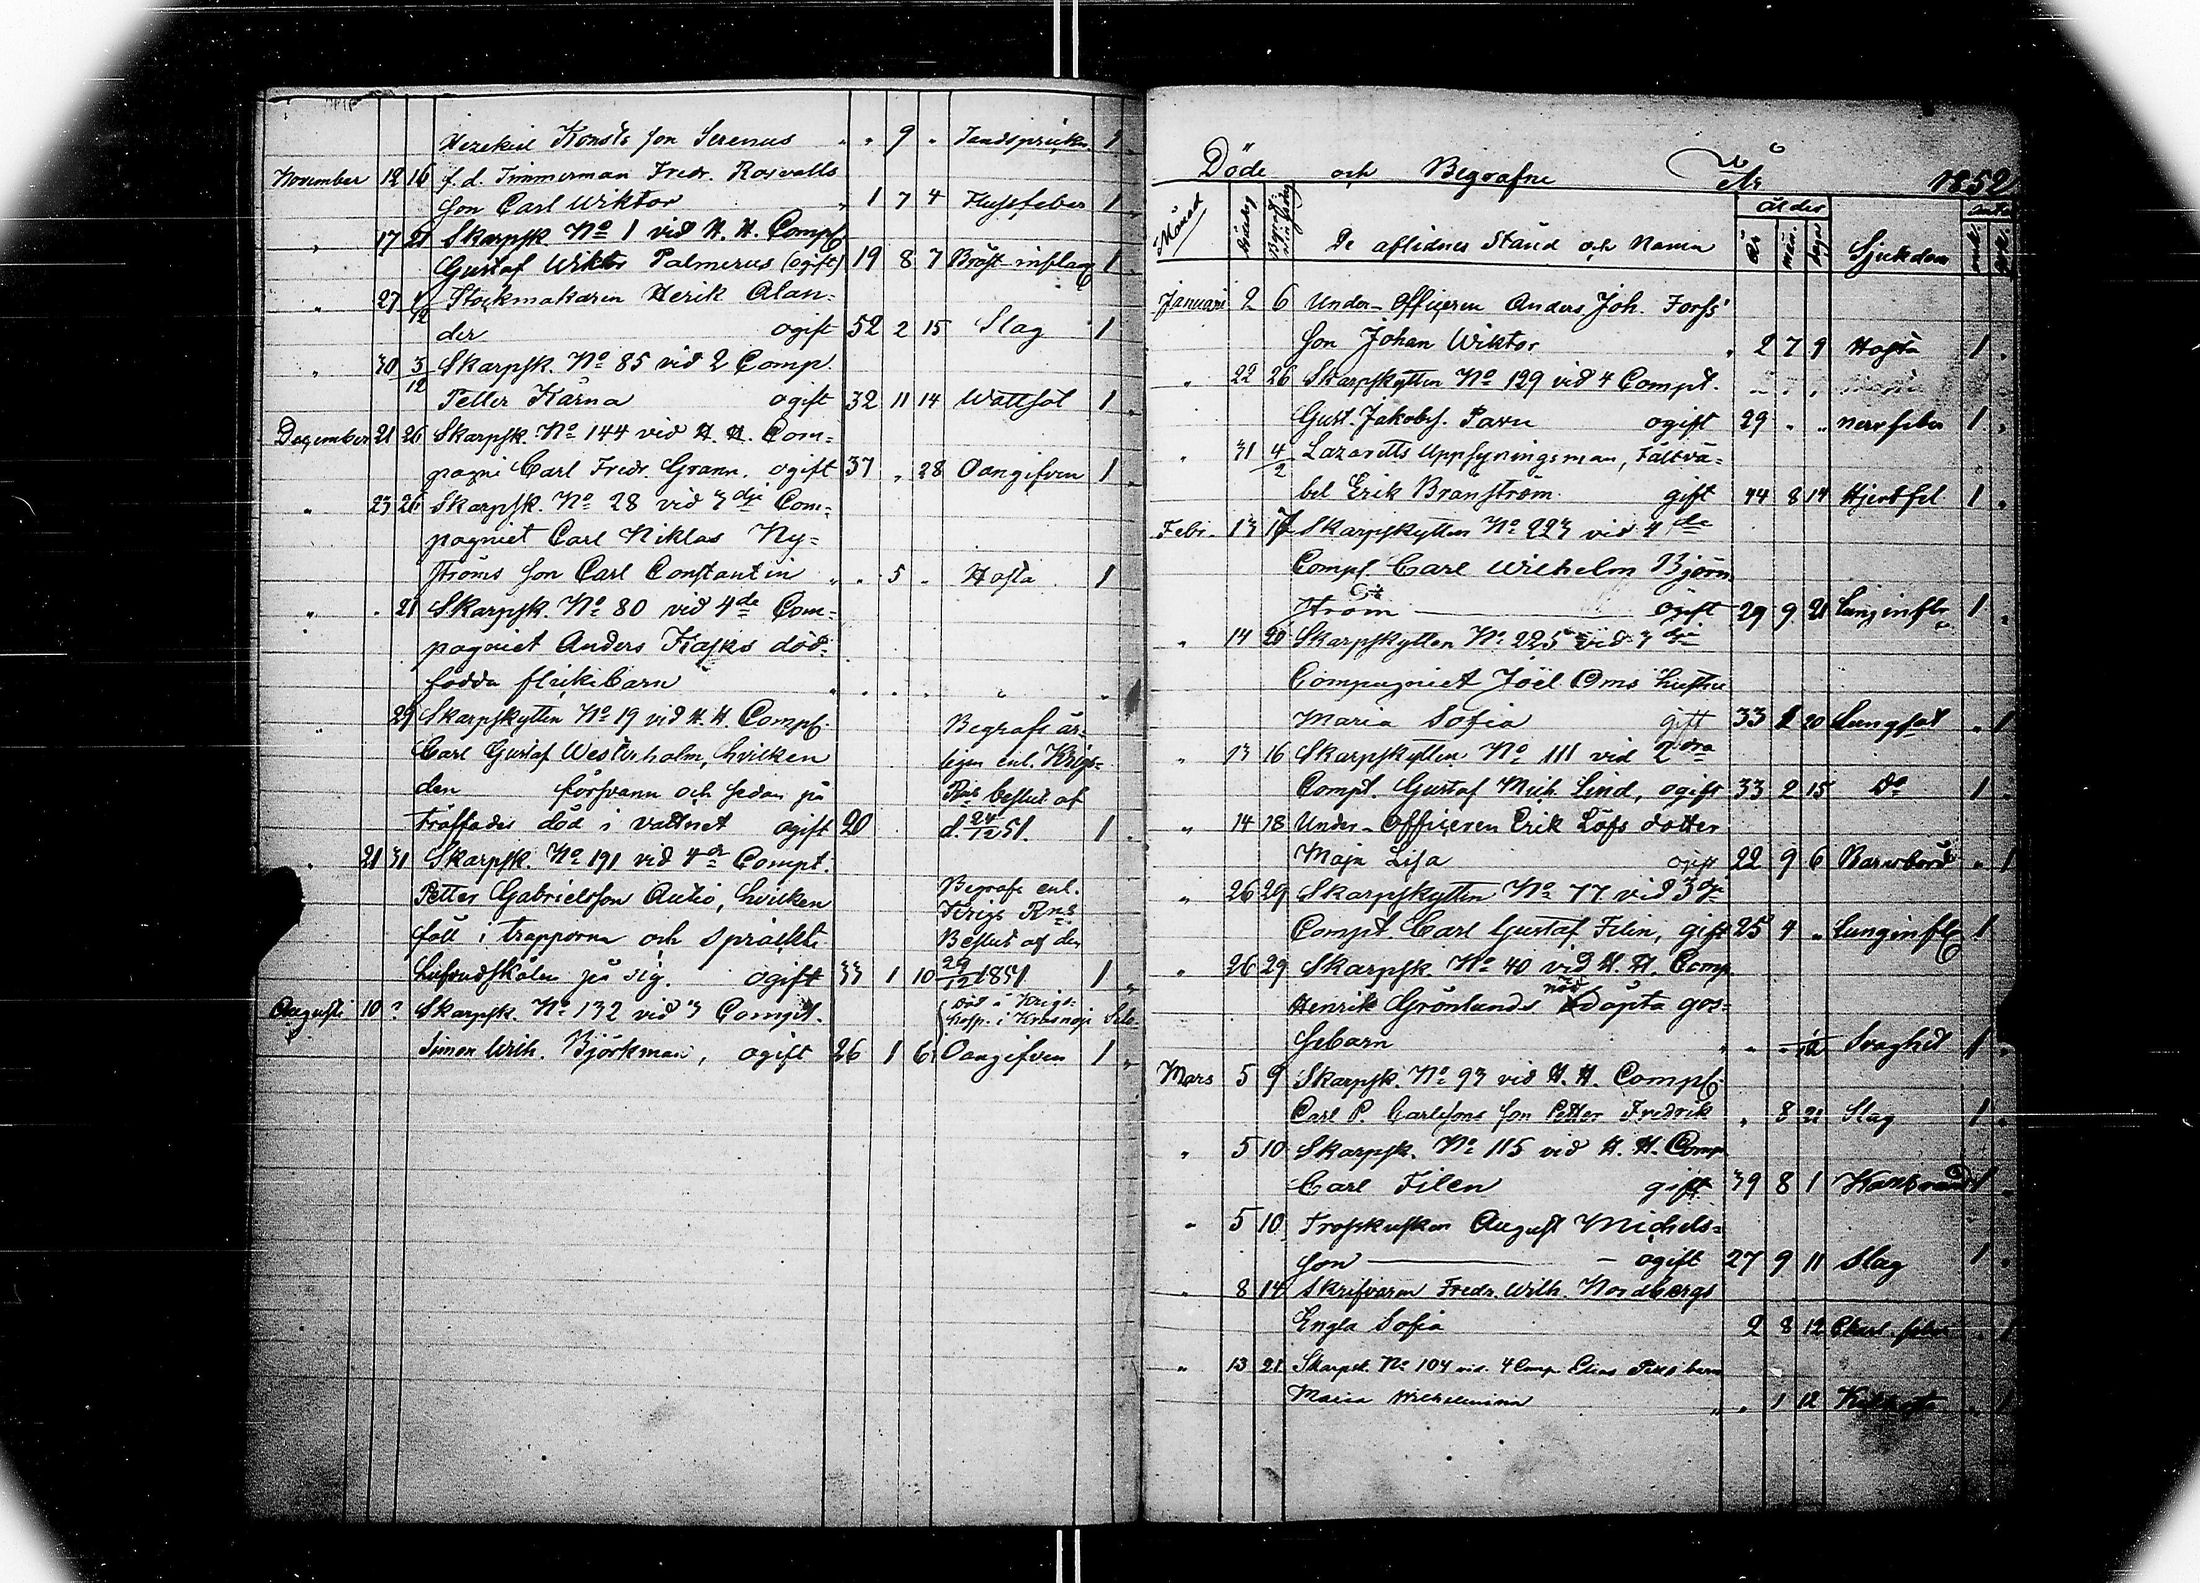 Hezekiel Konsts son Serenus " " 9 " Tandsprickn. 1 "
November 12 16 f. d. Timmerman Fredr. Rosvalls
son Carl Wiktor " 1 7 4 Flussfeber 1 "
" 17 21 Skarpsk. No 1 vid H. H. Comp.
Gustaf Wiktor Palmerus (ogift) 19 8 7 Bröst-inflam 1 "
" 27 4/12 Stockmakaren Herik Alan=
der ogift 52 2 15 Slag 1
" 30 3/12 Skarpsk. No 85 vid 2 Comp.
Petter Kärna ogift 32 11 14 Wattsot 1 "
December 21 26 Skarpsk. No 144 vid H. H. Com=
pagni Carl Fredr. Grann. ogift 37 " 28 Oangifven 1 "
" 23 26 Skarpsk. No 28 vid 3 dje Com=
pagniet Carl Niklas Ny=
ströms son Carl Constantin " " 5 " Hosta 1
" " 21 Skarpsk. No 80 vid 4 de Com=
pagniet Anders Kasks död=
födda flickebarn " " " " " "
" 29 Skarpskytten No 19 vid H. H. Comp.
Begrafs är=
Carl Gustaf Westerholm, hvilken
ligen enl. Krigs=
den försvann och sedan på
Rns beslut af
träffades död i vattnet ogift 20 d. 24/12 51. 1 "
" 21 31 Skarpsk. No 191 vid 4 de Compt.
Petter Gabrielsson Autio, hvilken
Begrafs enl.
Krigs Rns
föll i trapporna och spräckte
Beslut af den
hufvudskålen på sig. ogift 33 1 10 29/12 1851 1 "
Augusti 10 ? Skarpsk. No 132 vid 3 Compt.
död i Krigs=
hosp. i Krasnoje Selo.
Simon Wilh. Björkman, ogift 26 1 6 Oangifven 1 "
Döde och Begrafne År 1852
Månad Dödsdag Begrafningsdag De aflidnes Stånd och Namn Ålder Sjukdom
År mån. dagar mk. qk.
Januari 2 6 Under-Officeren Anders Joh. Forss'
son Johan Wiktor " 2 7 9 Hosta 1 "
" 22 26 Skarpskytten No 129 vid 4 Compt.
Gust. Jakobs. Parn ogift 29 " " nervfeber 1 "
" 31 4/2 Lazaretts Uppsyningsman, Fältvä=
bel Erik Branström gift 44 8 14 Hjertfel 1 "
Febr. 13 17 Skarpskytten No 223 vid 4 de
Comp. Carl Wilhelm Björn
ström ogift 29 9 21 Lunginflm 1 "
" 14 20 Skarpskytten No 225 vid 3 dje
Compagniet Joël Oms hustru
Maria Sofia gift 33 1 20 Lungsot " 1
" 13 16 Skarpskytten No 111 vid 2 dra
Compt. Gustaf Mich. Lind, ogift 33 2 15 Do 1 "
" 14 18 Under-Officeren Erik Löfs dotter
Maja Lisa ogift 22 9 6 Barnsbörd " 1
" 26 29 Skarpskytten No 77 vid 3 dje
Compt. Carl Gustaf Filin, gift 25 4 " Lunginfl. 1
" 26 29 Skarpsk. No 40 vid H. H. Comp
Henrik Grönlunds nöddöpta gos=
sebarn " " " 1/2 Svaghet 1 "
Mars 5 9 Skarpsk. No 93 vid H. H. Comp.
Carl P. Carlssons son Petter Fredrik " 8 21 Slag 1 "
" 5 10 Skarpsk. No 115 vid H. H. Comp
Carl Filen gift 39 8 1 Kallbrand 1 "
" 5 10 Trosskusken August Michels=
son ogift 27 9 11 Slag 1 "
" 8 14 Skrifvaren Fredr. Wilh. Nordbergs
Engla Sofia 2 8 12 Skarl. feber " 1
" 13 21 Skarpsk. No 104 vid. 4 Comp Elias barn
Maria Wilhelmina " " 1 12 Kikhosta " 1